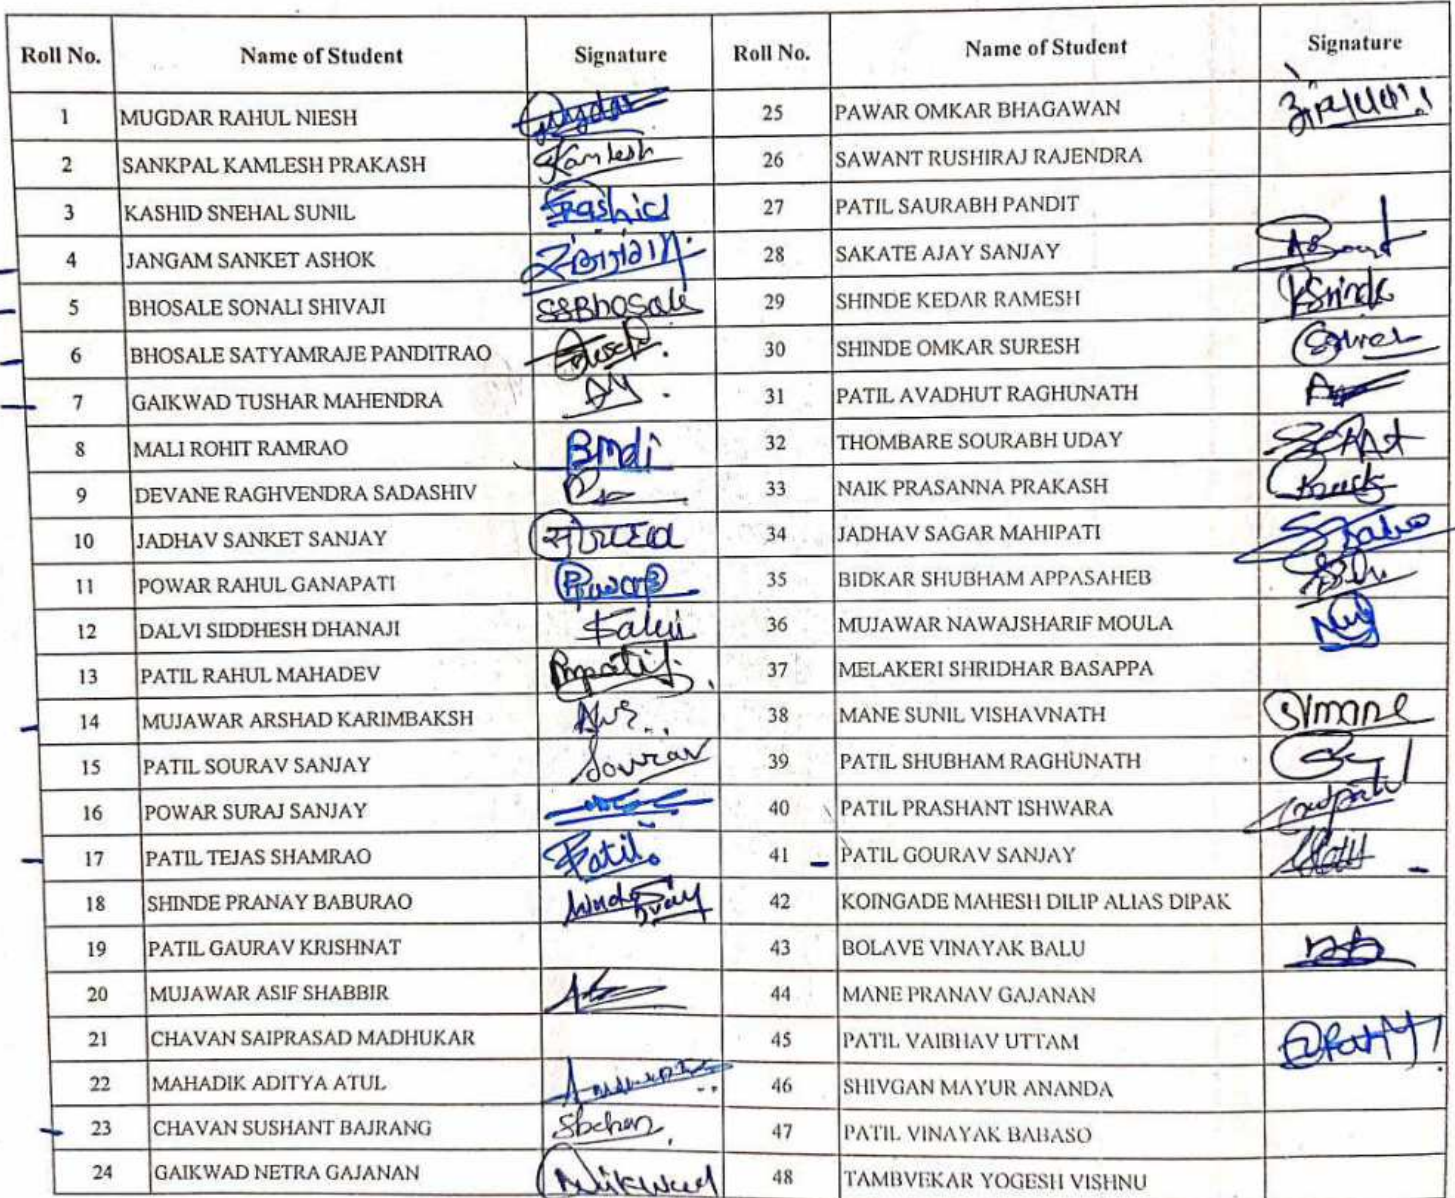 Roll No. Name of Student Signature Roll No. Name of Student Signature
1 MUGDAR RAHUL NIESH 25 PAWAR OMKAR BHAGAWAN
2 SANKPAL KAMLESH PRAKASH Kamlesh 26 SAWANT RUSHIRAJ RAJENDRA
3 KASHID SNEHAL SUNIL Kashid 27 PATIL SAURABH PANDIT
4 JANGAM SANKET ASHOK 28 SAKATE AJAY SANJAY
5 BHOSALE SONALI SHIVAJI SSBhosale 29 SHINDE KEDAR RAMESH KShinde
6 BHOSALE SATYAMRAJE PANDITRAO 30 SHINDE OMKAR SURESH
7 GAIKWAD TUSHAR MAHENDRA 31 PATIL AVADHUT RAGHUNATH
8 MALI ROHIT RAMRAO 32 THOMBARE SOURABH UDAY
9 DEVANE RAGHVENDRA SADASHIV 33 NAIK PRASANNA PRAKASH
10 JADHAV SANKET SANJAY 34 JADHAV SAGAR MAHIPATI
11 POWAR RAHUL GANAPATI 35 BIDKAR SHUBHAM APPASAHEB
12 DALVI SIDDHESH DHANAJI 36 MUJAWAR NAWAJSHARIF MOULA
13 PATIL RAHUL MAHADEV Rmpatil. 37 MELAKERI SHRIDHAR BASAPPA
14 MUJAWAR ARSHAD KARIMBAKSH 38 MANE SUNIL VISHAVNATH SVmane
15 PATIL SOURAV SANJAY Sourav 39 PATIL SHUBHAM RAGHUNATH
16 POWAR SURAJ SANJAY 40 PATIL PRASHANT ISHWARA
17 PATIL TEJAS SHAMRAO Patil. 41 PATIL GOURAV SANJAY
18 SHINDE PRANAY BABURAO 42 KOINGADE MAHESH DILIP ALIAS DIPAK
19 PATIL GAURAV KRISHNAT 43 BOLAVE VINAYAK BALU
20 MUJAWAR ASIF SHABBIR 44 MANE PRANAV GAJANAN
21 CHAVAN SAIPRASAD MADHUKAR 45 PATIL VAIBHAV UTTAM
22 MAHADIK ADITYA ATUL 46 SHIVGAN MAYUR ANANDA
23 CHAVAN SUSHANT BAJRANG 47 PATIL VINAYAK BABASO
24 GAIKWAD NETRA GAJANAN 48 TAMBVEKAR YOGESH VISHNU